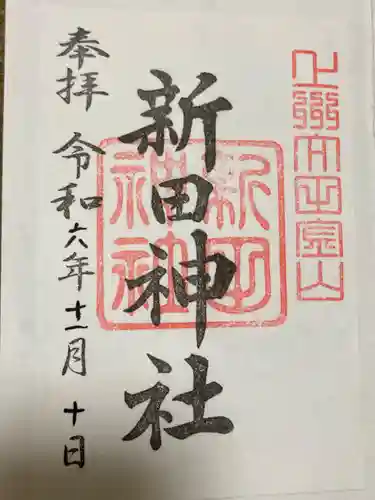 新田神社
奉拝
令和六年十一月十日
新田
神社